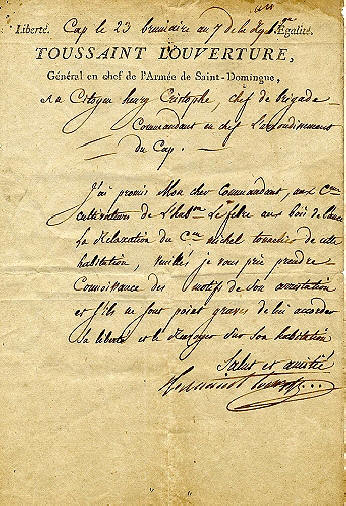 Liberté. Cap le 23 brumaire an 7 de la Rép. Égalité.
TOUSSAINT LOUVERTURE,
Général en chef de l'Armée de Saint-Domingue,
au Citoyen henry Cristophe, chef de brigade
Commandant en chef L'arrondissement
du Cap.
J'ai promis Mon cher Commandant, aux Cens
cultivateurs de L'habon Le febre aux bois de
La Relaxation du Cen michel de cette
habitation, veuillés je vous prie prendre
Connoissance des motifs de son arrestation
et s'ils ne sont point graves de lui accorder
sa liberté et le Renvoyer sur son habitation
Salut et amitié
Toussaint Louverture